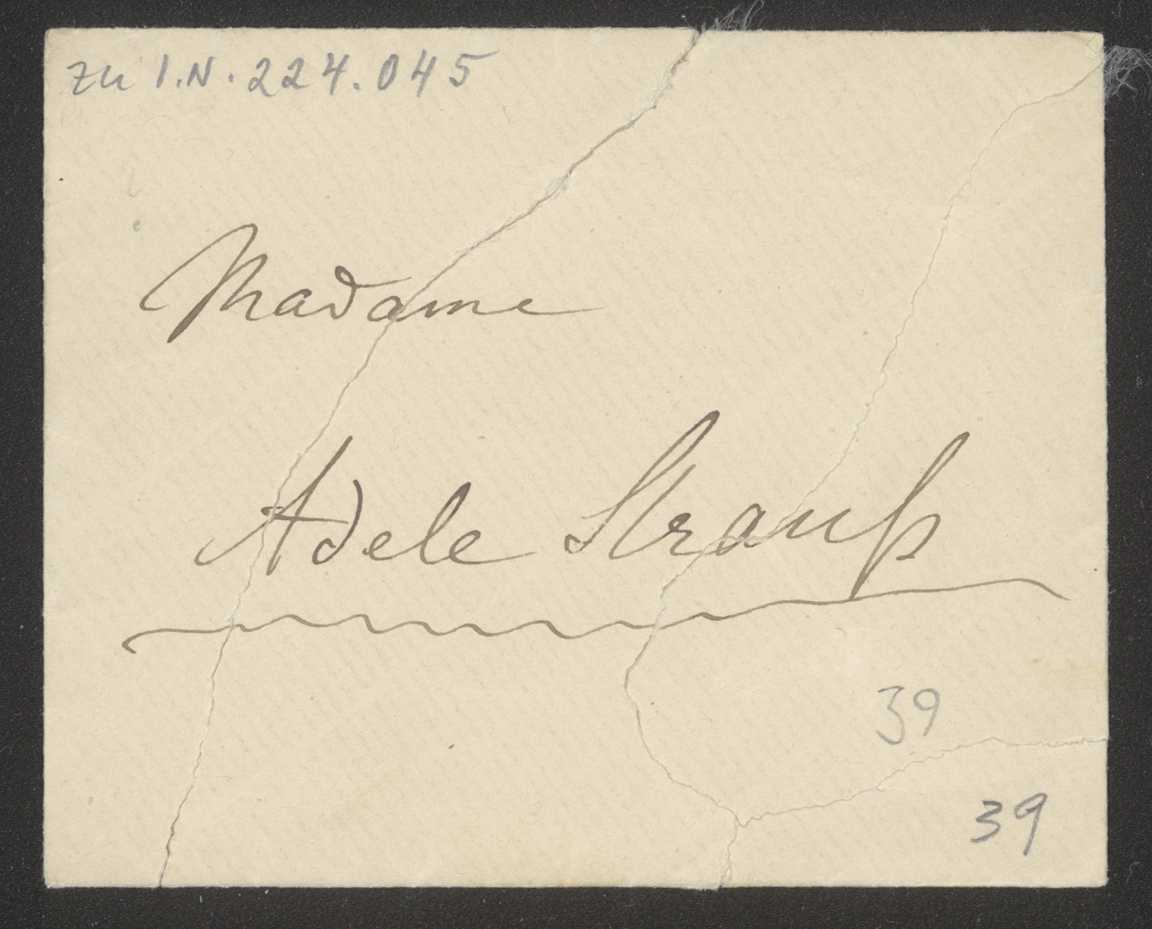 zu I.N. 224.045
Madame
Adele Strauß
39
39